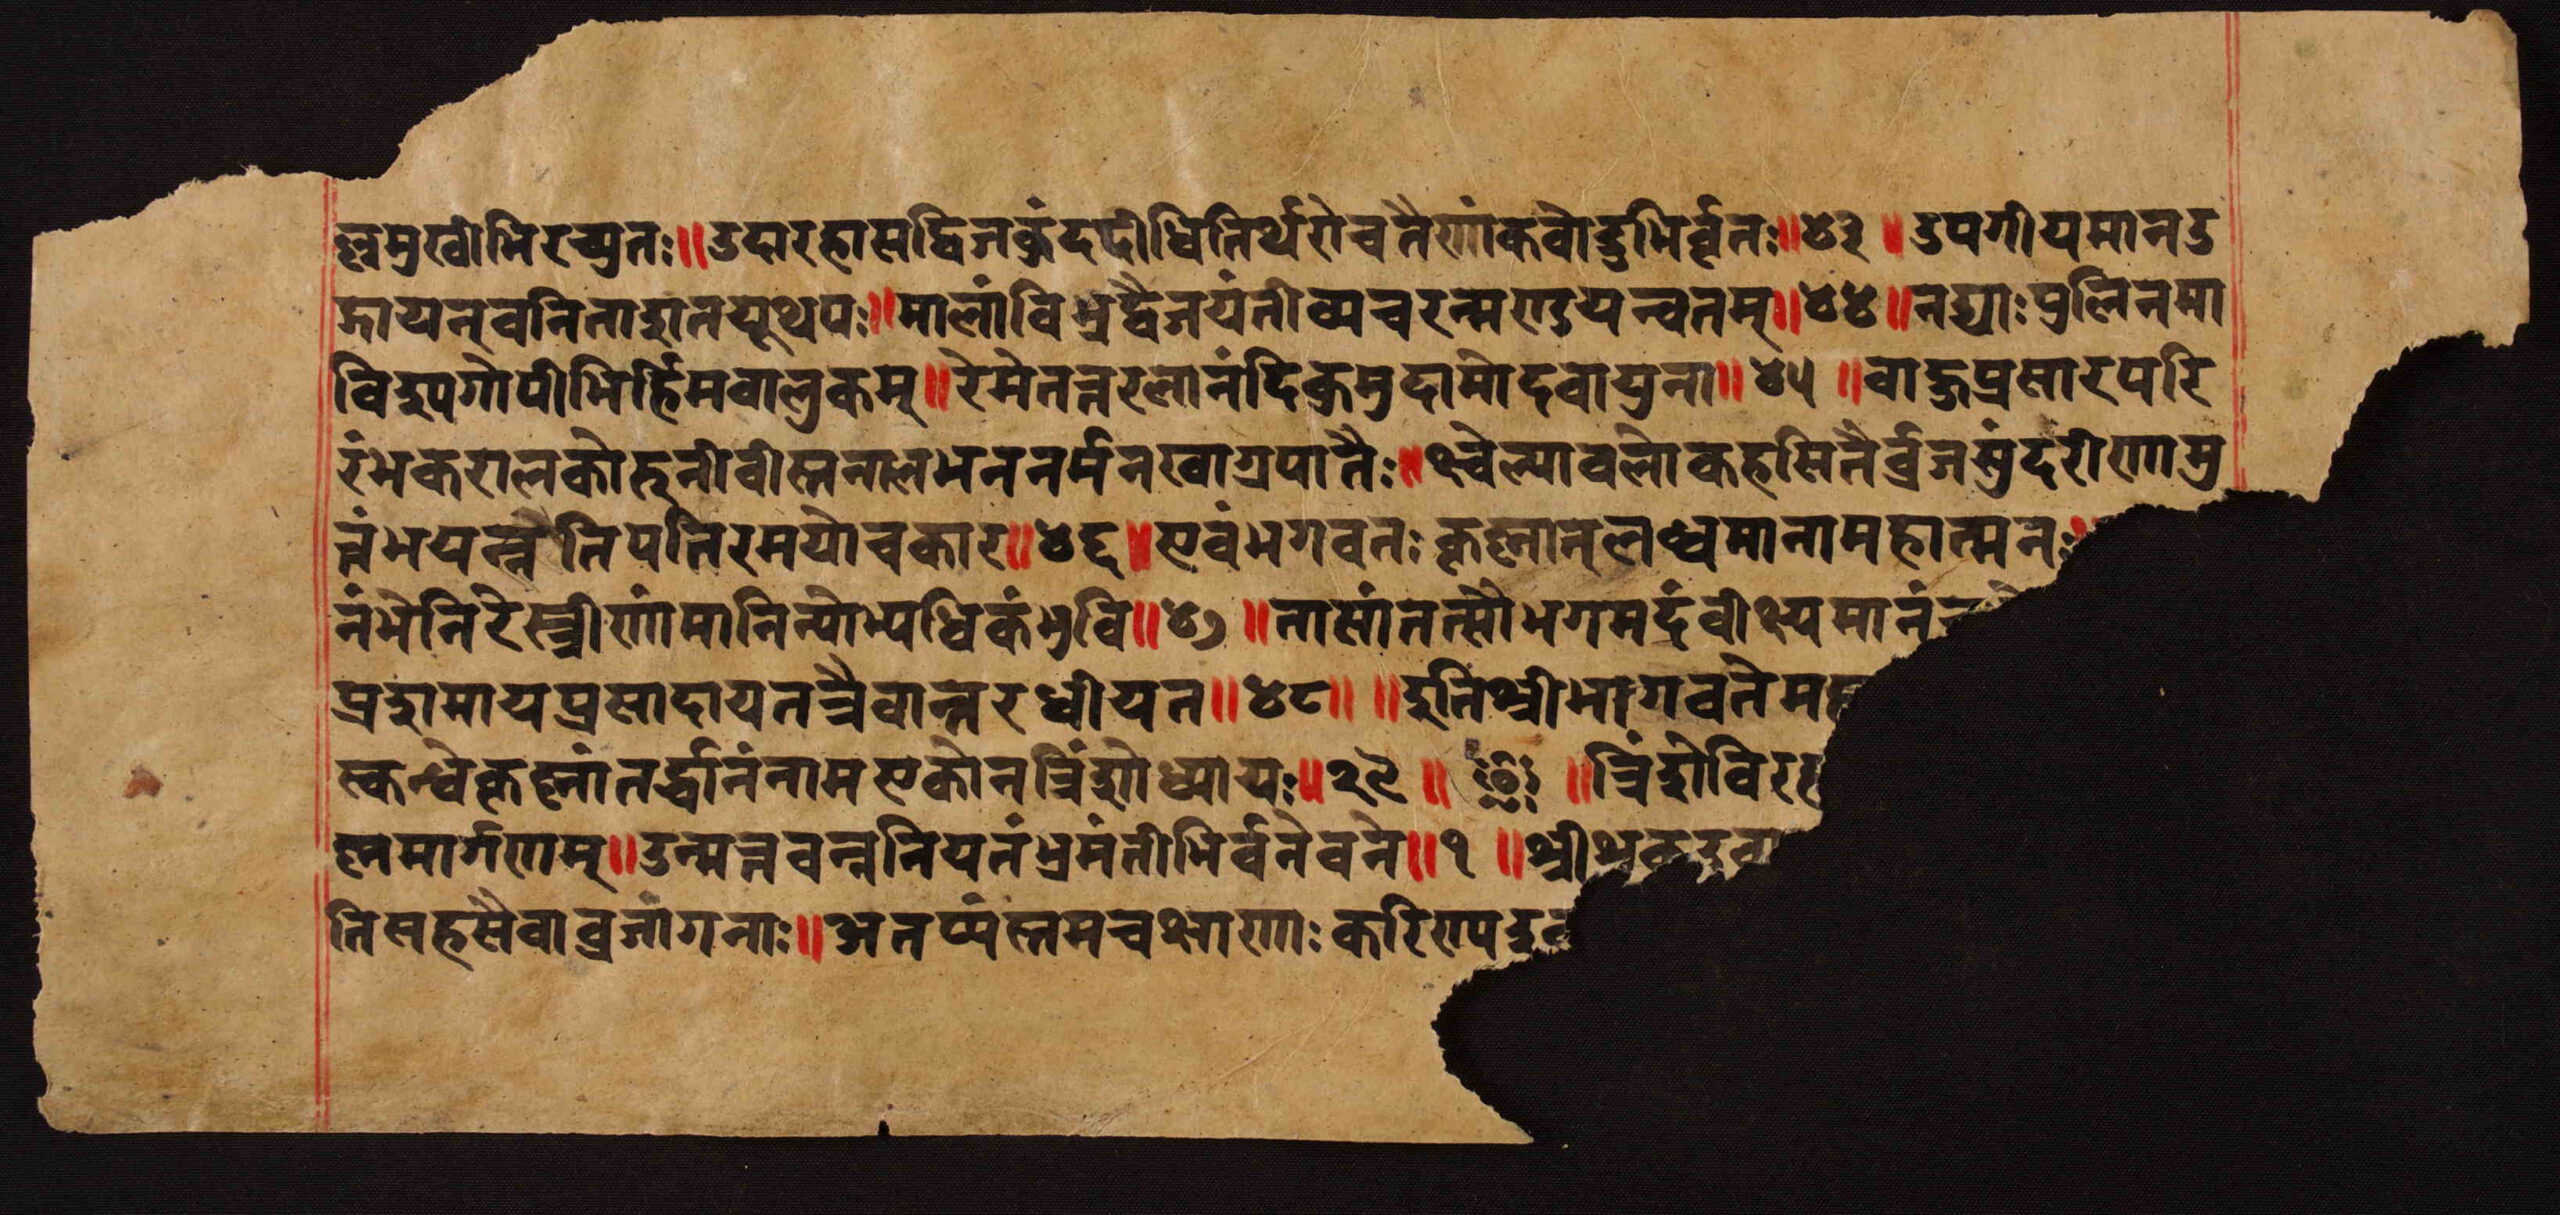 ल्लमुखीभिरच्युतः॥उदारहासद्विजकुंददीधितिर्व्यरोचतैणांकवोडुभिर्वृतः॥४३॥उपगीयमानउ
द्गायन्वनिताशतयूथपः॥मालांविभ्रद्वैजयंतीव्यचरन्मण्डयन्वनम्॥४४॥नद्याःपुलिनमा
विश्यगोपीभिर्हिमवालुकम्॥रेमेतत्तरलानंदिकुमुदामोदवायुना॥४५॥वाहुप्रसारपरि
रंभकरालकोरुनीवीस्तनालभननर्मनखाग्रपातैः॥क्ष्वेल्यावलोकहसितैर्व्रजसुंदरीणामु
त्तंभयन्रतिपतिंरमयांचकार॥४६॥एवंभगवतःकृष्णाल्लब्धमानामहात्मनः॥
नंमेनिरेस्त्रीणांमानिन्योभ्यधिकंभुवि॥४७॥तासांतत्सौभगमदंवीक्ष्यमानं
प्रशमायप्रसादायतत्रैवान्तरधीयत॥४८॥ ॥इतिश्रीभागवतेमहा
स्कन्धेकृष्णांतर्द्धानंनामएकोनत्रिंशोध्यायः॥२९॥ ॥त्रिंशेविरह
ष्णमार्गणम्॥उन्मत्तवन्ननियतंभ्रमंतीभिर्वनेवने॥१॥श्रीशुकउवा
तिसहसैवाव्रजांगनाः॥अतप्यंस्तमचक्षाणाःकरिण्यइव